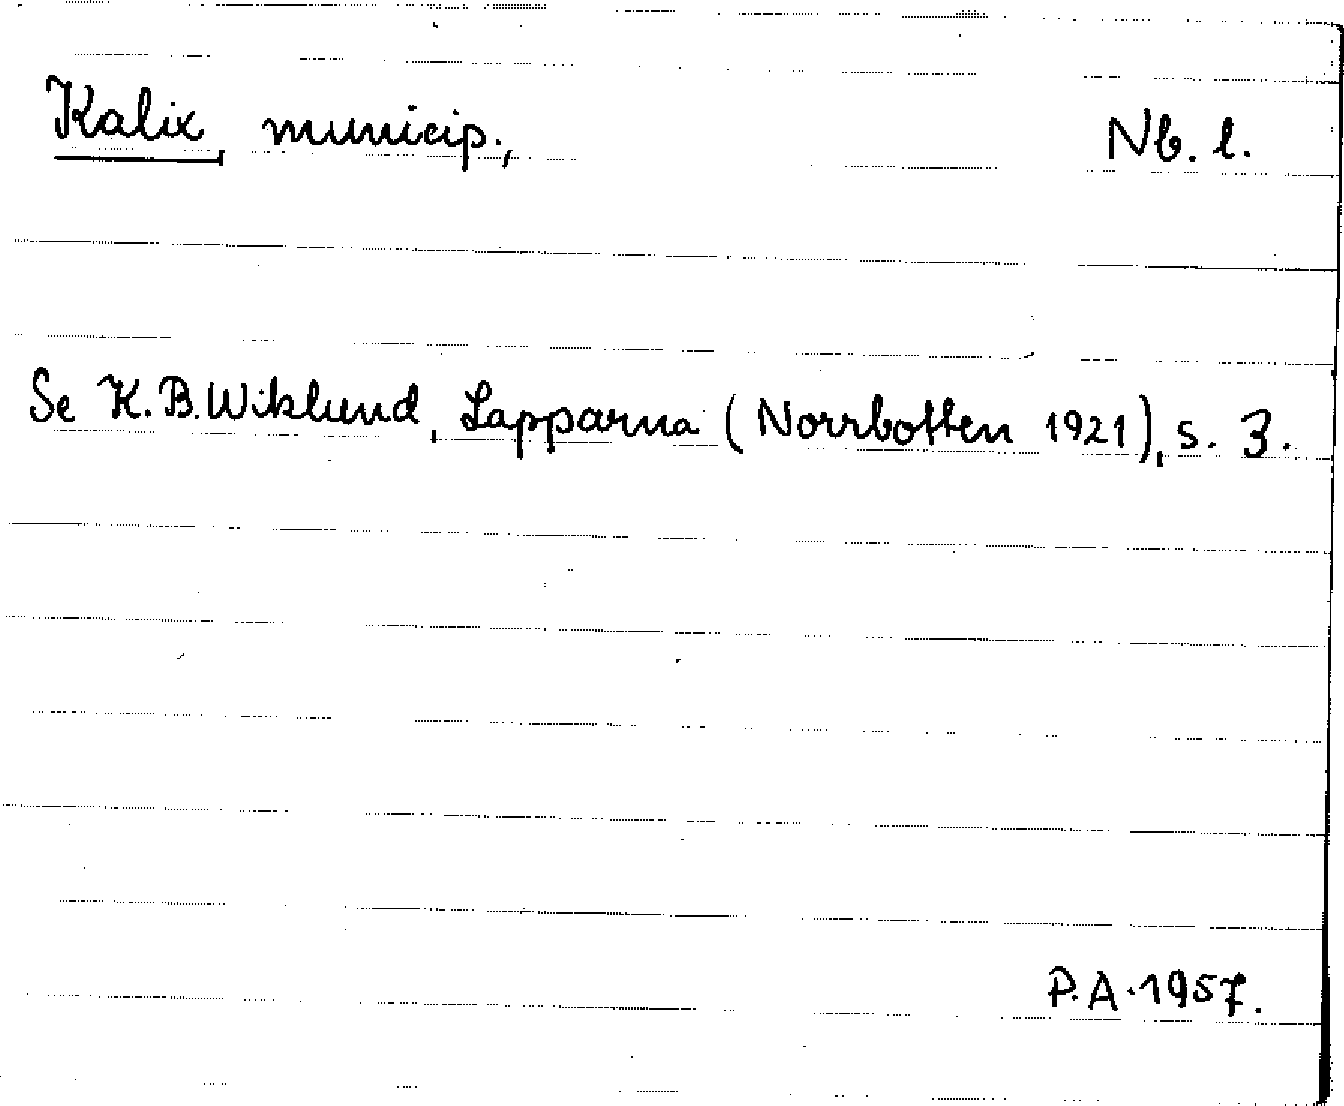 Kalix, municip., Nb. l.
Se K.B. Wiklund, Lapparna (Norrbotten 1921), s. 3.
P.A. 1957.